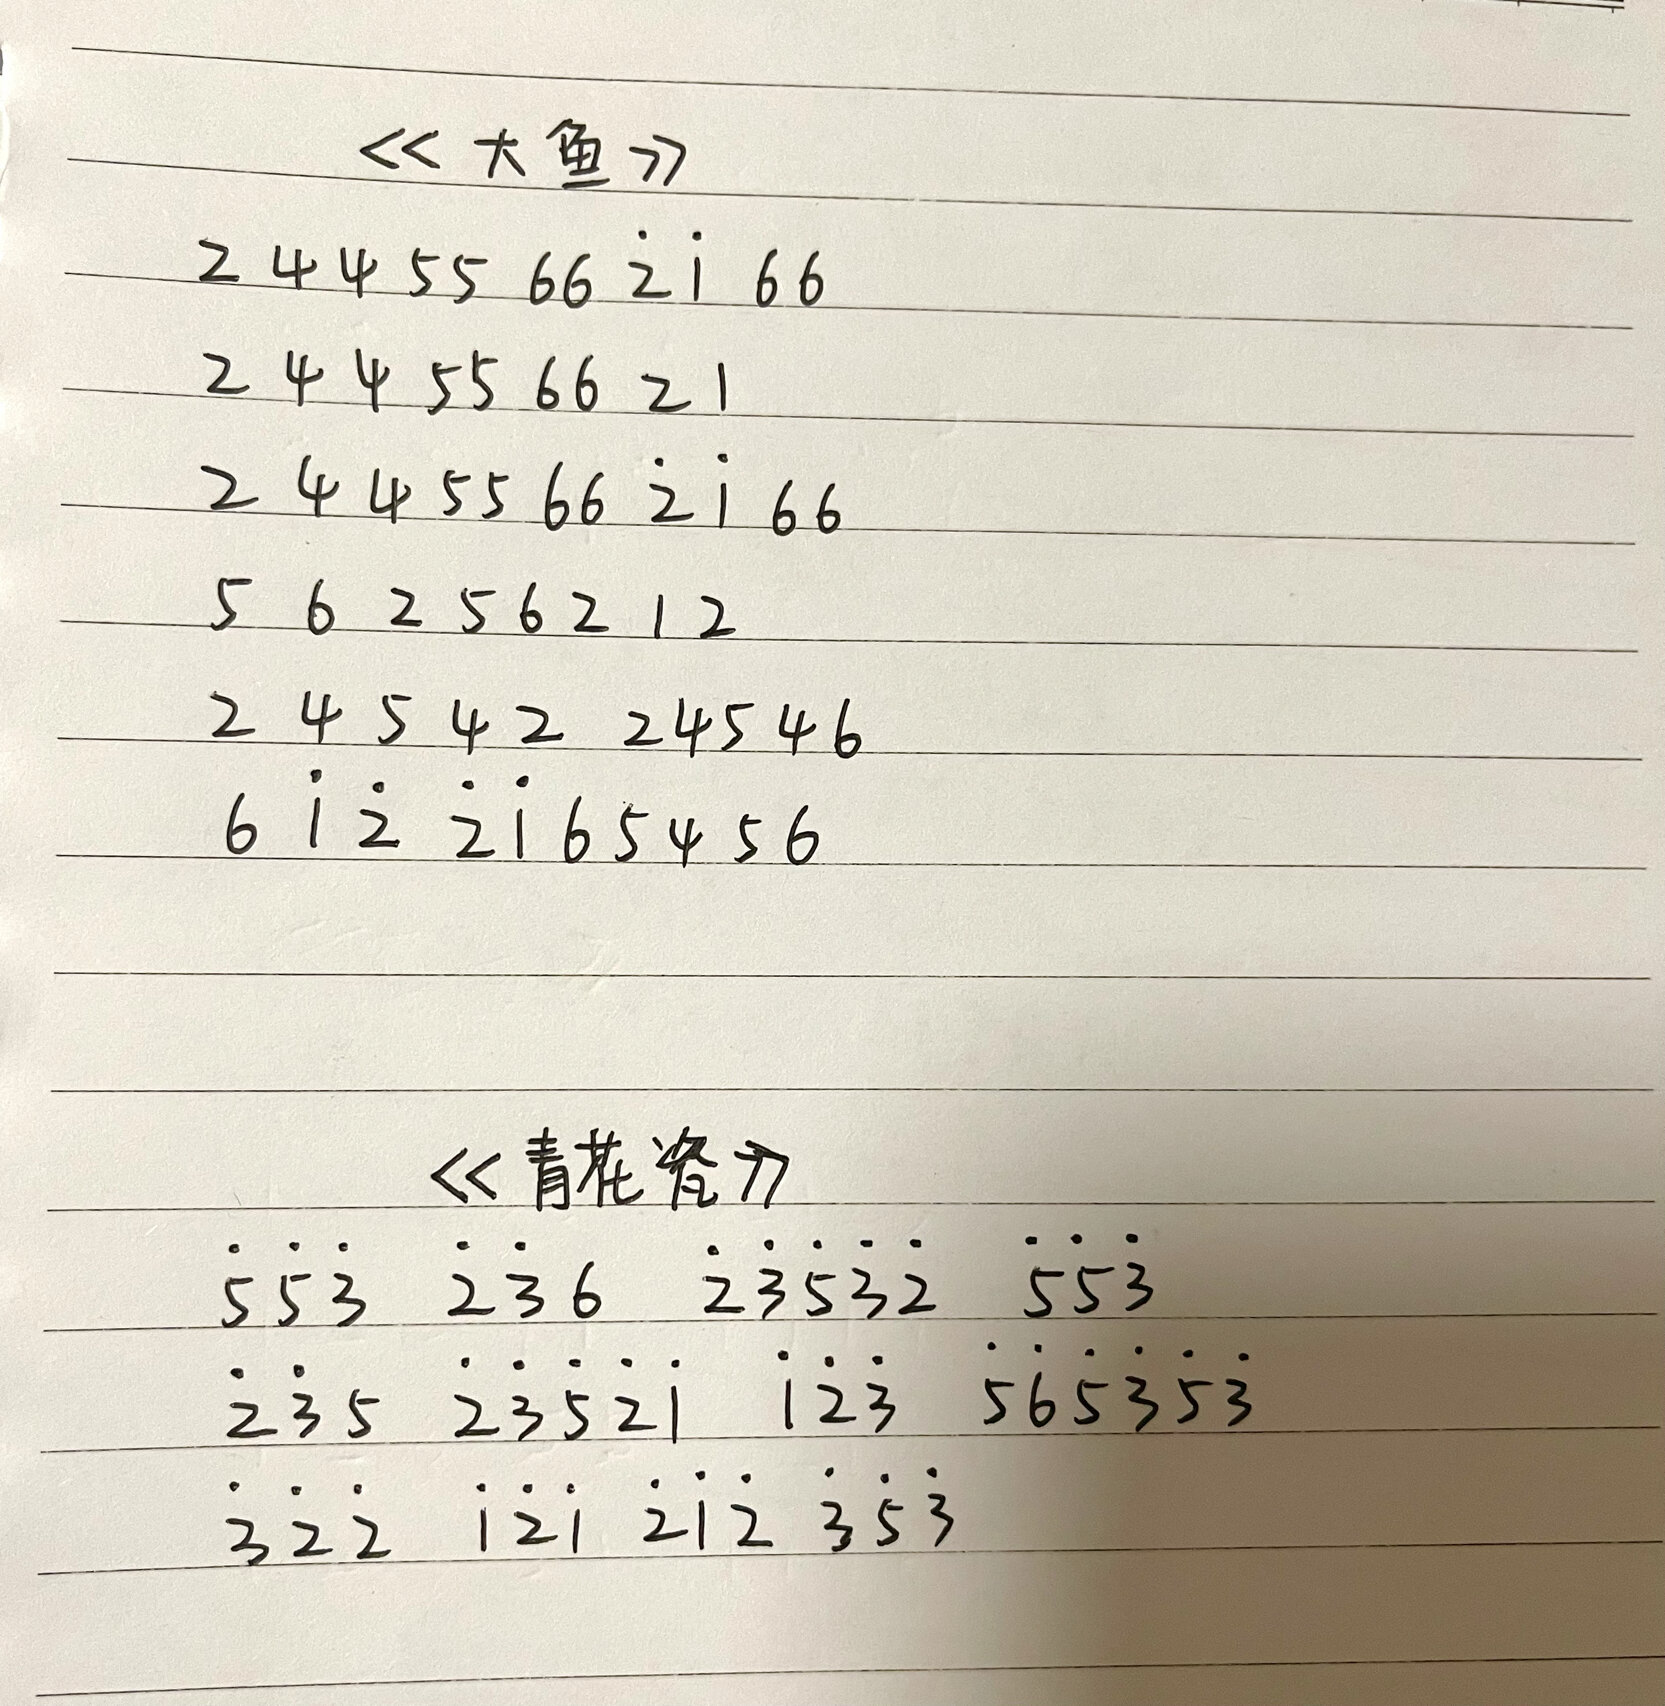 <<大鱼>>
2 4 4 5 5 6 6 2̇ 1̇ 6 6
2 4 4 5 5 6 6 2 1
2 4 4 5 5 6 6 2̇ 1̇ 6 6
5 6 2 5 6 2 1 2
2 4 5 4 2 2 4 5 4 6
6 1̇ 2̇ 2̇ 1̇ 6 5 4 5 6
<<青花瓷>>
5̇ 5̇ 3̇ 2̇ 3̇ 6 2̇ 3̇ 5̇ 3̇ 2̇ 5̇ 5̇ 3̇
2̇ 3̇ 5 2̇ 3̇ 5̇ 2̇ 1̇ 1̇ 2̇ 3̇ 5̇ 6̇ 5̇ 3̇ 5̇ 3̇
3̇ 2̇ 2̇ 1̇ 2̇ 1̇ 2̇ 1̇ 2̇ 3̇ 5̇ 3̇